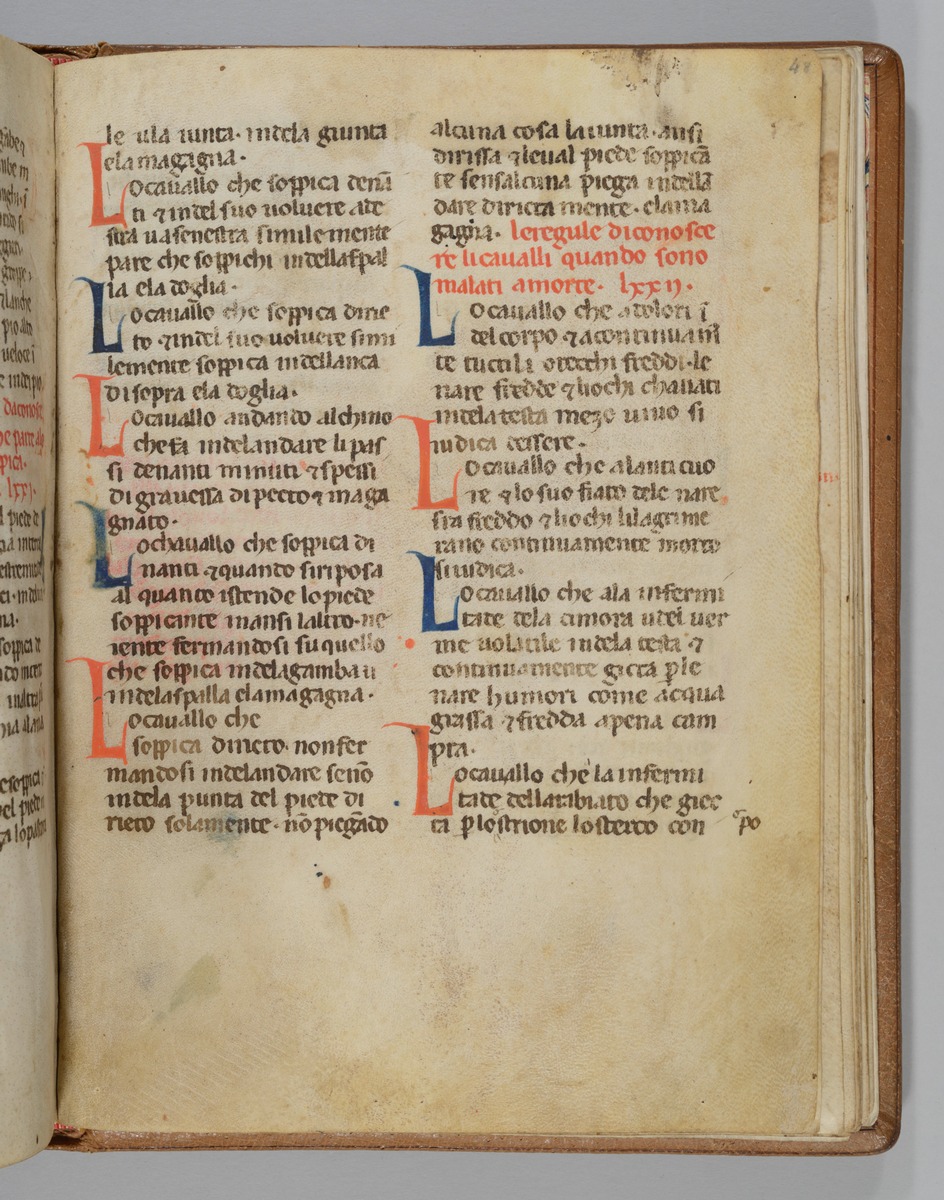 le ula iunta· indela giunta
ela magagna·
Locauallo che soppica denā
ti ⁊ indel suo uoluere ade
stra ua senestra simile mente
pare che soppichi indellaspal
la ela doglia·
Locauallo che soppica dirie
to· ⁊ indel suo uoluere simi
lemente soppica indellanca
disopra ela doglia·
Locauallo andando alchino
che fa indelandare li pas
si denanti minuti ⁊ spessi
di grauessa di pecto ⁊ maga
gnato·
Lochauallo che soppica di
nanti ⁊ quando si riposa
al quanto istende lo piede
soppicante inansi laltro· ne
iente fermandosi su quello
che soppica indelagamba u
indelaspalla elamagagna·
Locauallo che
soppica dirieto· non fer
mandosi indelandare senō
indela punta del piede di
rieto solamente· nō piegādo
alcuna cosa la iunta· ansi
dirissa ⁊ leual piede soppicā
te sensalcuna piega indellā
dare diricta mente· elama
gagna· le regule di conosce
re li caualli quando sono
malati amorte· lxxii·
Locauallo che a dolori ī
del corpo· ⁊ a continuamē
te tucti li orecchi freddi· le
nare fredde ⁊ liochi chauati
indela testa mezo uiuo si
iudica dessere·
Locauallo che alanti cuo
re ⁊ lo suo fiato dele nare
sia freddo ⁊ liochi li lagrime
rano continuamente morto
si iudica·
Locauallo che ala infermi
tade dela cimora u del uer
me uolatile indela testa ⁊
continuamente gicta ꝑ le
nare humori come acqua
grassa ⁊ fredda apena cam
pra·
Locauallo che la infermi
tade dellarabiato che giec
ta ꝑ lostrione lo sterco con
po
48